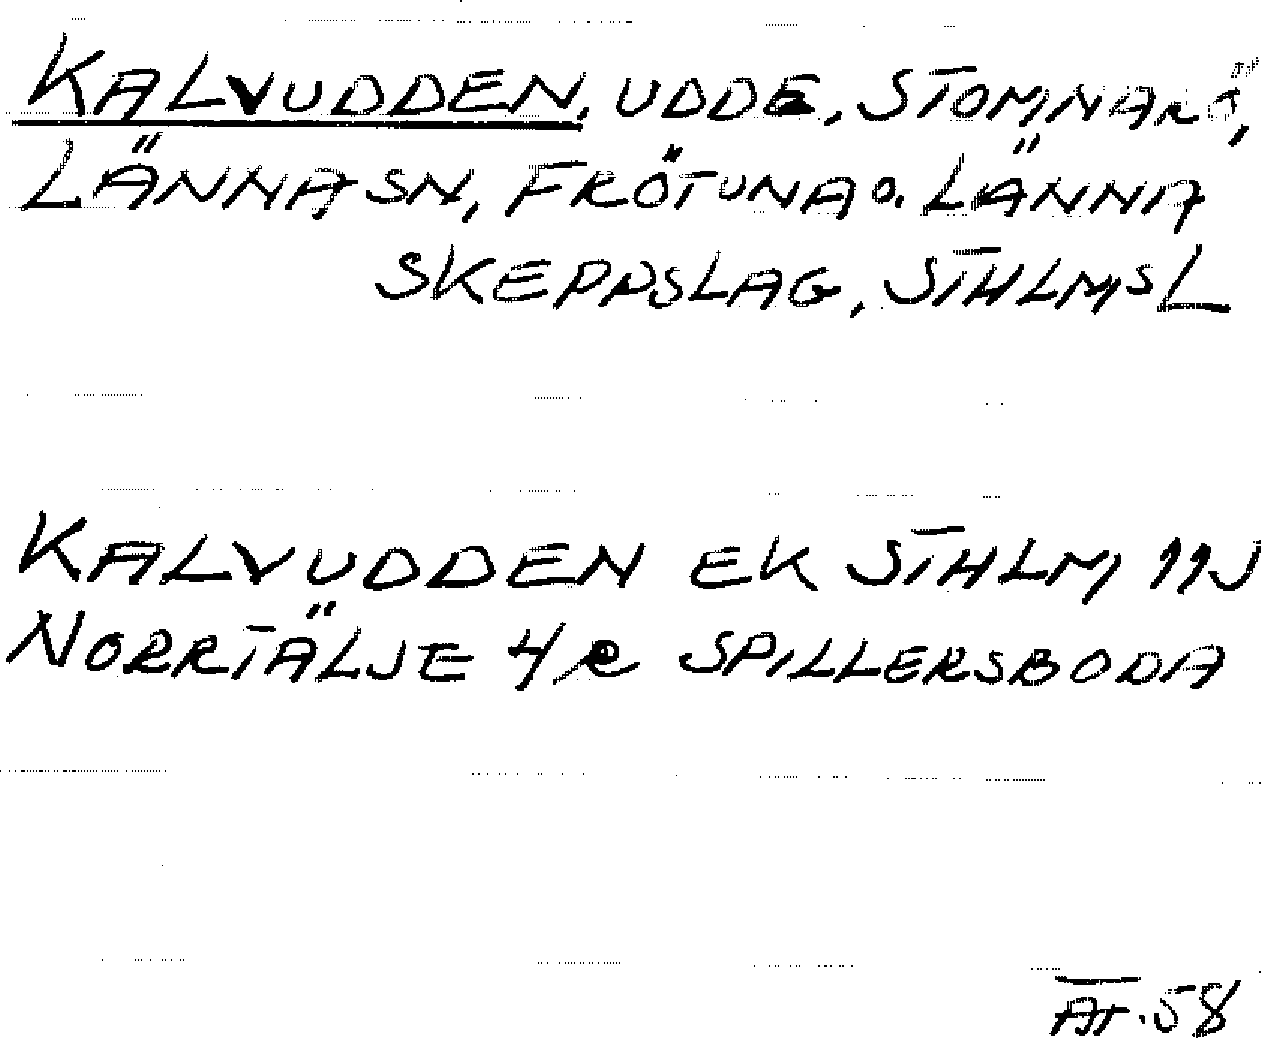 KALVUDDEN, UDDE, STOMNARÖ,
LÄNNA SN, FRÖTUNA O. LÄNNA
SKEPPSLAG, STHLMS L
KALVUDDEN EK STHLM 11J
NORRTÄLJE 4/ SPILLERSBODA
58